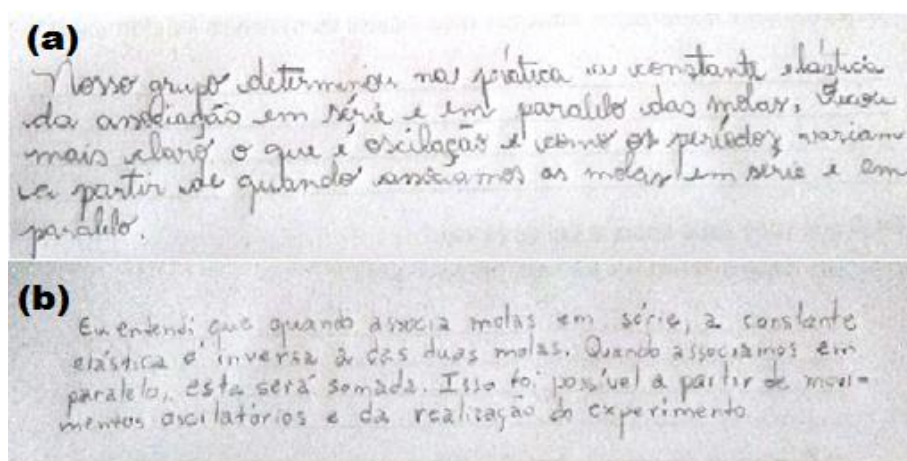 (a)
Nosso grupo determinou na prática a constante elástica
da associação em série e em paralelo das molas. Ficou
mais claro o que é oscilação e como os períodos variam
a partir de quando associamos as molas em série e em
paralelo.
(b)
Eu entendi que quando associa molas em série, a constante
elástica é inversa à das duas molas. Quando associamos em
paralelo, esta será somada. Isso foi possível a partir de movi-
mentos oscilatórios e da realização do experimento